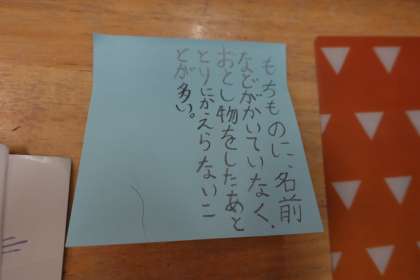 もちものに、名前
などがかいていなく、
おとし物をしたあと
とりにかえらないこ
とが多い。